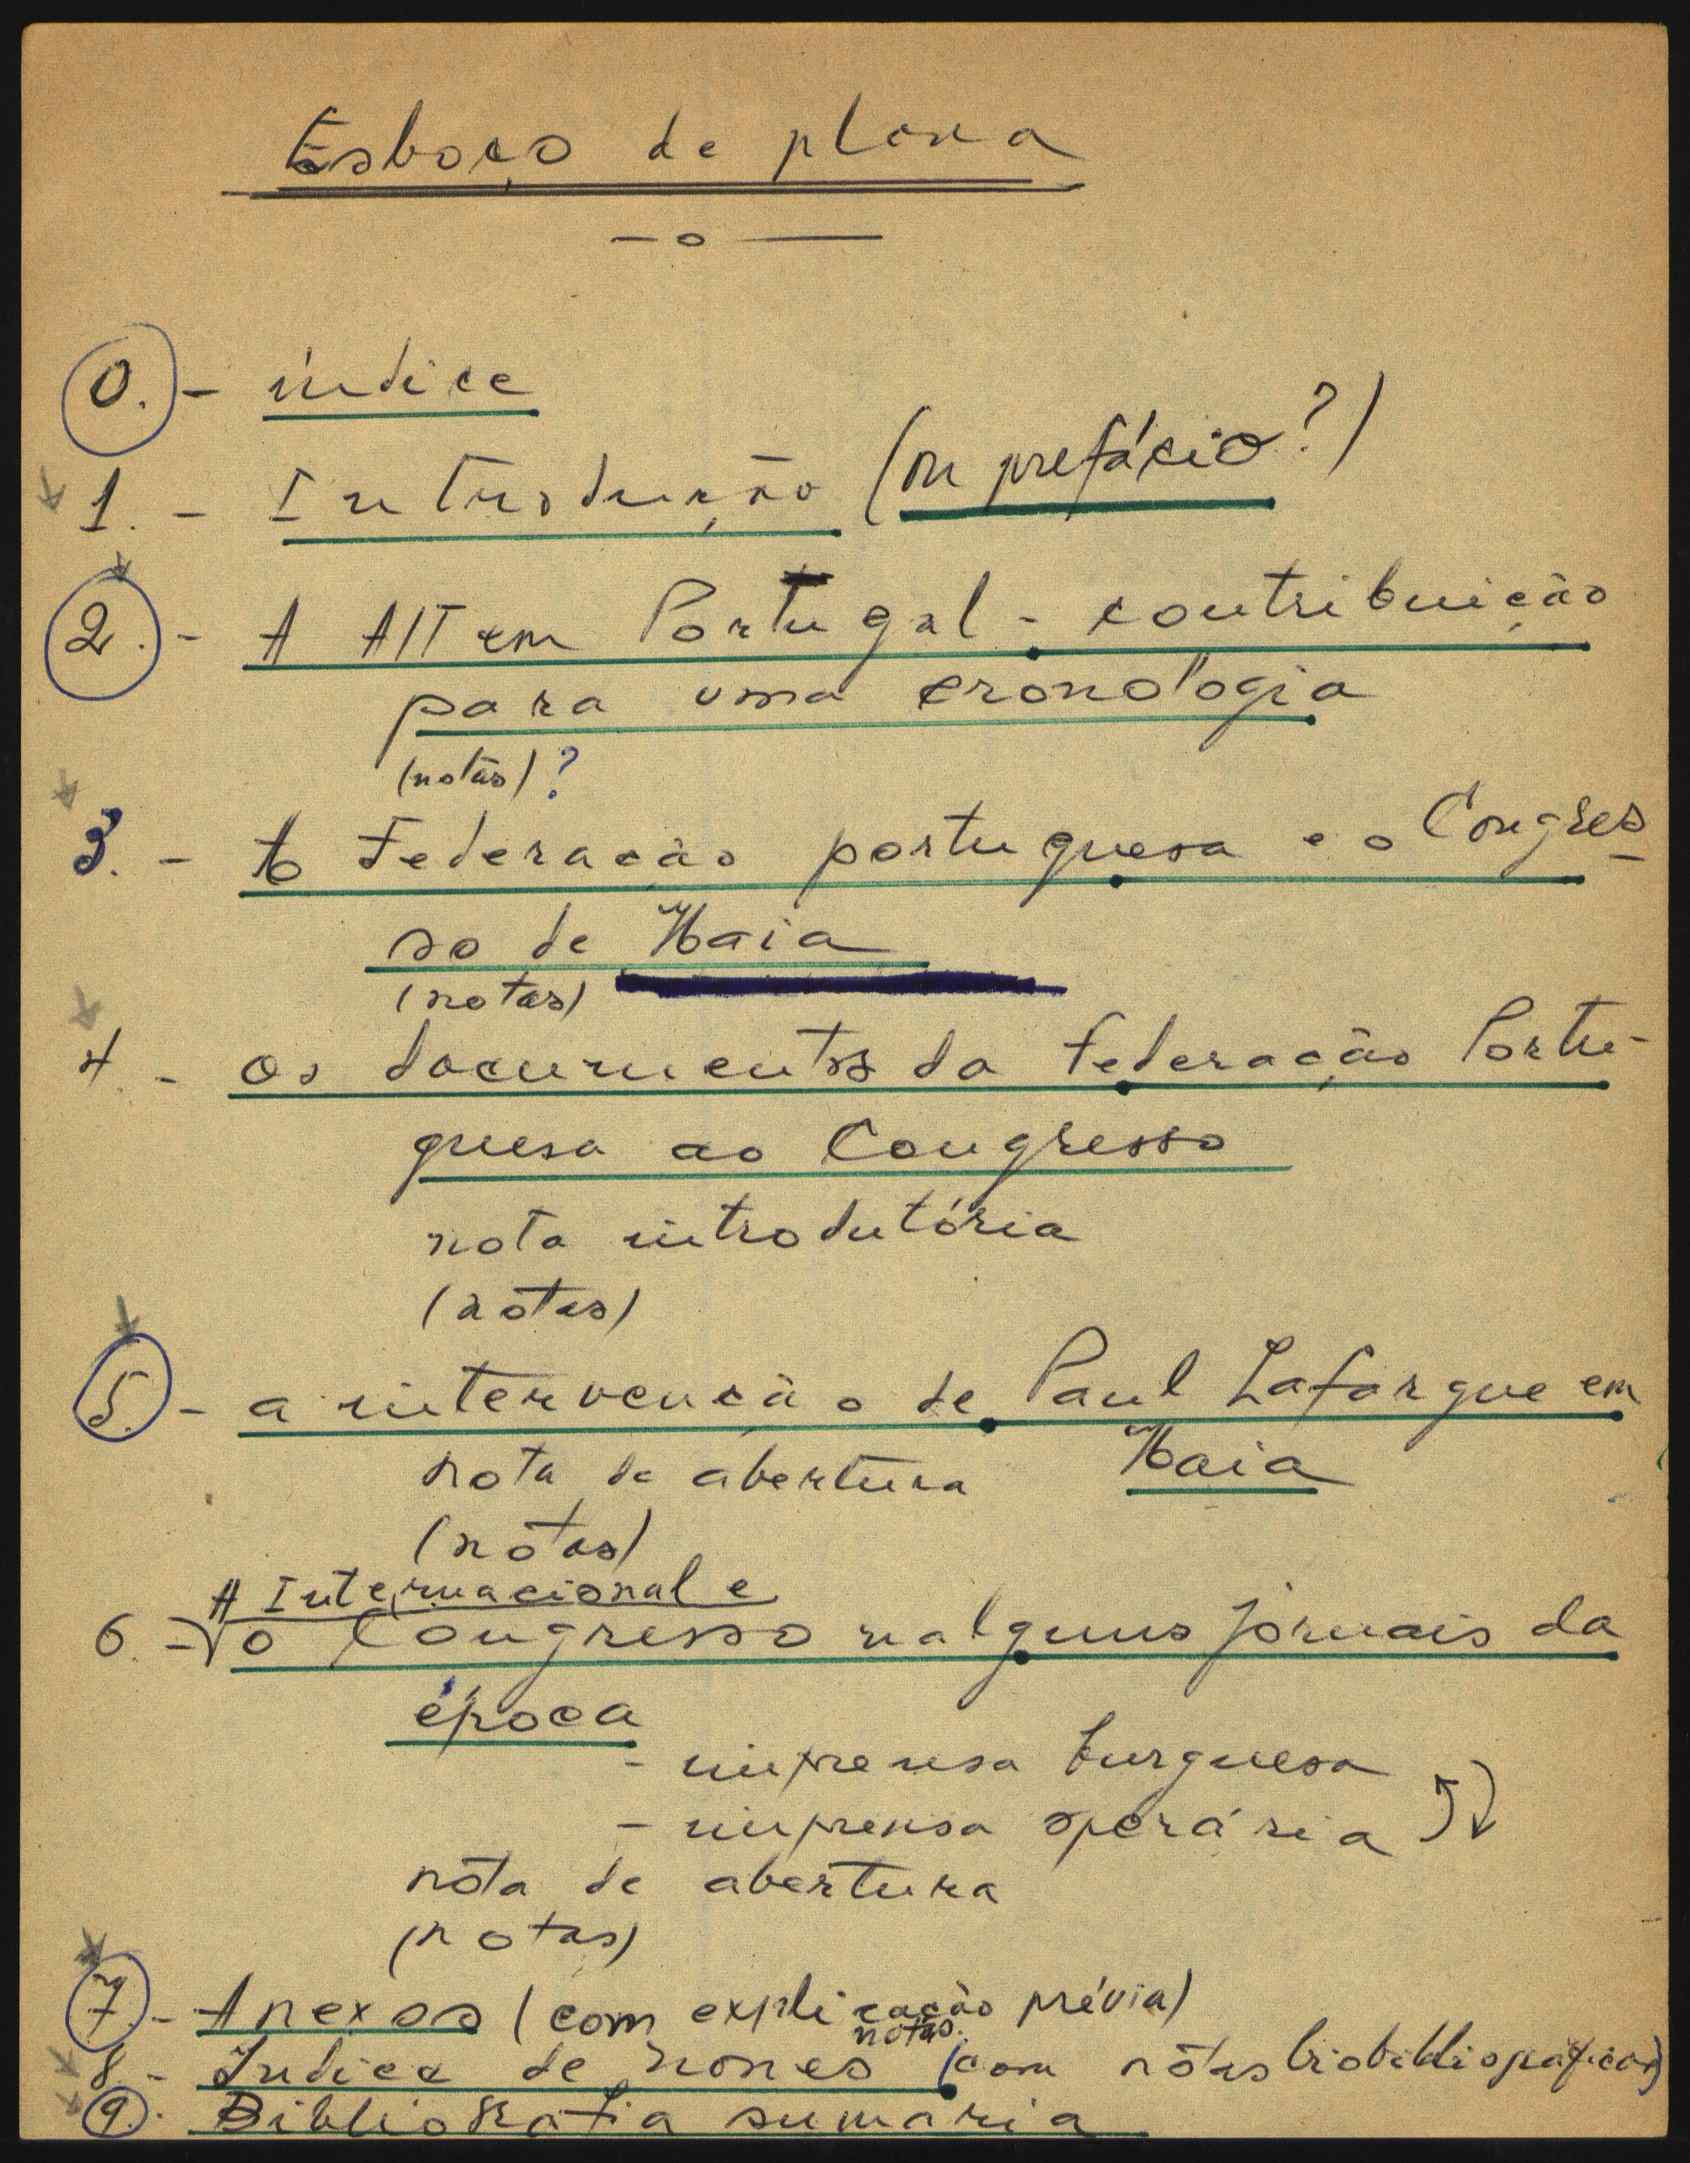 Esboço de plano
0. - índice
1. - Introdução (ou prefácio?)
2. - A AIT em Portugal - contribuição
para uma cronologia
(notas)?
3. - A Federação portuguesa e o Congres-
so de Haia
(notas)
4. - os documentos da Federação Portu-
guesa ao Congresso
nota introdutória
(notas)
5. - a intervenção de Paul Lafargue em
Haia
nota de abertura
(notas)
A Internacional e
6. - o Congresso nalguns jornais da
época
- imprensa burguesa
- imprensa operária
nota de abertura
(notas)
7 - Anexos (com explicação prévia)
notas
8 - Índice de nomes (com nótas biobibliográficas)
9. - Bibliografia sumária